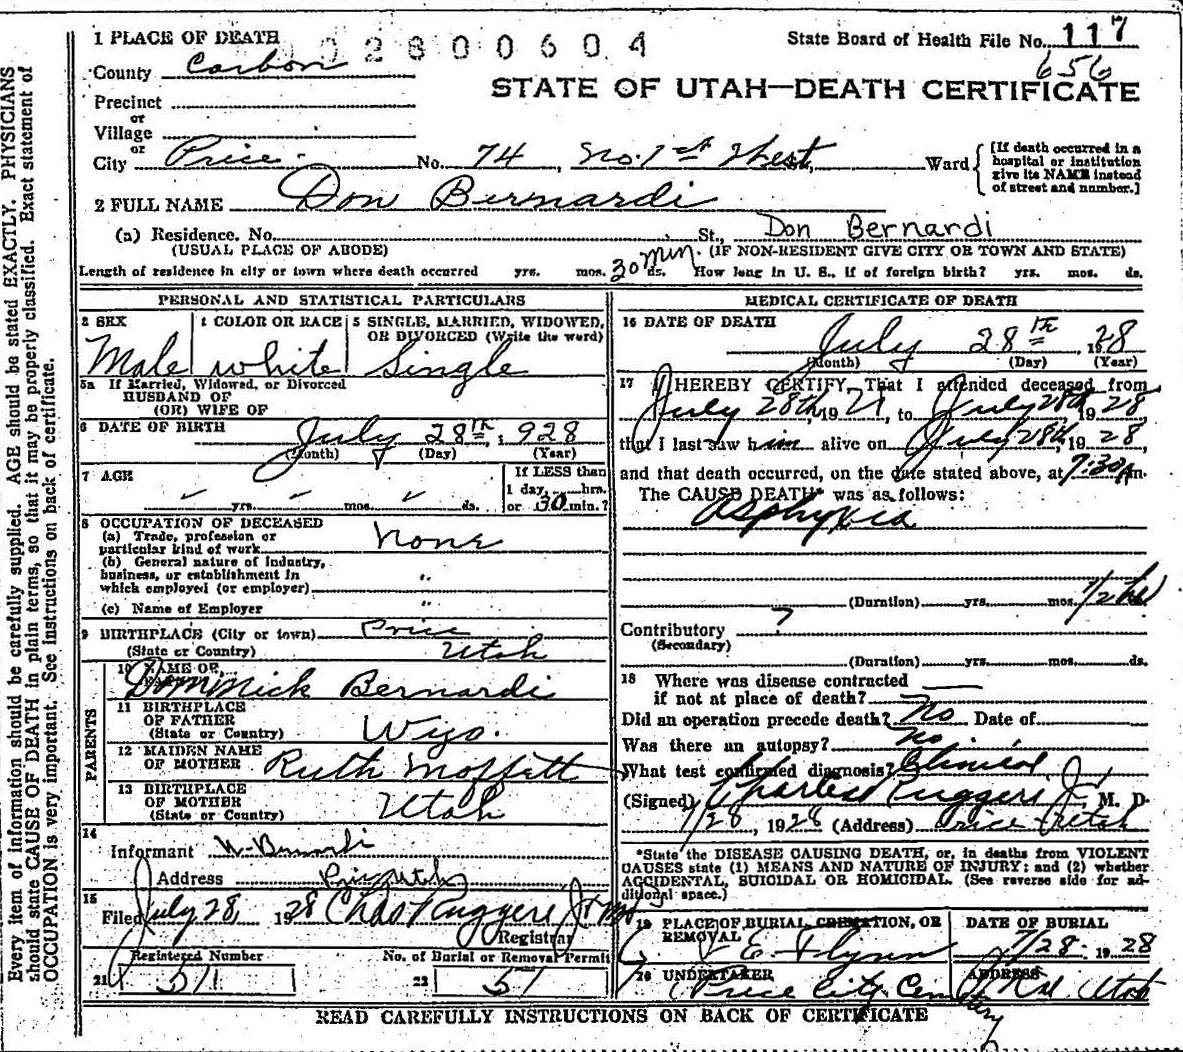 1 PLACE OF DEATH
2800604
State Board of Health File No. 117
656
County Carbon
STATE OF UTAH—DEATH CERTIFICATE
Precinct
or
Village
or
City Price. No. 74, No. 1st West, Ward
[If death occurred in a
hospital or institution
give its NAME instead
of street and number.]
2 FULL NAME Don Bernardi
(a) Residence. No. St., Don Bernardi
(USUAL PLACE OF ABODE) (IF NON-RESIDENT GIVE CITY OR TOWN AND STATE)
Length of residence in city or town where death occurred yrs. mos. 30 min. ds. How long in U. S., if of foreign birth? yrs. mos. ds.
PERSONAL AND STATISTICAL PARTICULARS
3 SEX 4 COLOR OR RACE 5 SINGLE, MARRIED, WIDOWED,
OR DIVORCED (Write the word)
Male white Single
5a If Married, Widowed, or Divorced
HUSBAND OF
(OR) WIFE OF
6 DATE OF BIRTH July 28th, 1928
(Month) (Day) (Year)
7 AGE If LESS than
1 day, hrs.
yrs. mos. ds. or 30 min.?
8 OCCUPATION OF DECEASED
(a) Trade, profession or
particular kind of work none
(b) General nature of industry,
business, or establishment in
which employed (or employer) "
(c) Name of Employer "
9 BIRTHPLACE (City or town) Price
(State or Country) Utah
PARENTS
10 NAME OF
Dominick Bernardi
11 BIRTHPLACE
OF FATHER
(State or Country) Wyo.
12 MAIDEN NAME
OF MOTHER Ruth Moffett
13 BIRTHPLACE
OF MOTHER
(State or Country) Utah
14
Informant
Address Price, Utah
15
Filed July 28, 1928 Chas Ruggeri Jr
Registrar
Registered Number No. of Burial or Removal Permit
21 571 22 57
MEDICAL CERTIFICATE OF DEATH
16 DATE OF DEATH
July 28th, 1928
(Month) (Day) (Year)
17 I HEREBY CERTIFY, That I attended deceased from
July 28th, 19 , to July 28th 1928
that I last saw him alive on July 28th, 1928
and that death occurred, on the date stated above, at 7:30 A m.
The CAUSE DEATH* was as follows:
Asphyxia
(Duration) yrs. mos. 1/2 hr ds
Contributory ?
(Secondary)
(Duration) yrs. mos. ds.
18 Where was disease contracted
if not at place of death?
Did an operation precede death? No Date of
Was there an autopsy? no
What test confirmed diagnosis? Clinical
(Signed) Charles Ruggeri Jr, M. D.
7/28, 1928 (Address) Price Utah
*State the DISEASE CAUSING DEATH, or, in deaths from VIOLENT
CAUSES state (1) MEANS AND NATURE OF INJURY; and (2) whether
ACCIDENTAL, SUICIDAL OR HOMICIDAL. (See reverse side for ad-
ditional space.)
19 PLACE OF BURIAL, CREMATION, OR
REMOVAL
DATE OF BURIAL
E. Flynn 7/28 1928
20 UNDERTAKER ADDRESS
Price City Cemetery Utah
READ CAREFULLY INSTRUCTIONS ON BACK OF CERTIFICATE
Every item of information should be carefully supplied. AGE should be stated EXACTLY. PHYSICIANS
should state CAUSE OF DEATH in plain terms, so that it may be properly classified. Exact statement of
OCCUPATION is very important. See instructions on back of certificate.